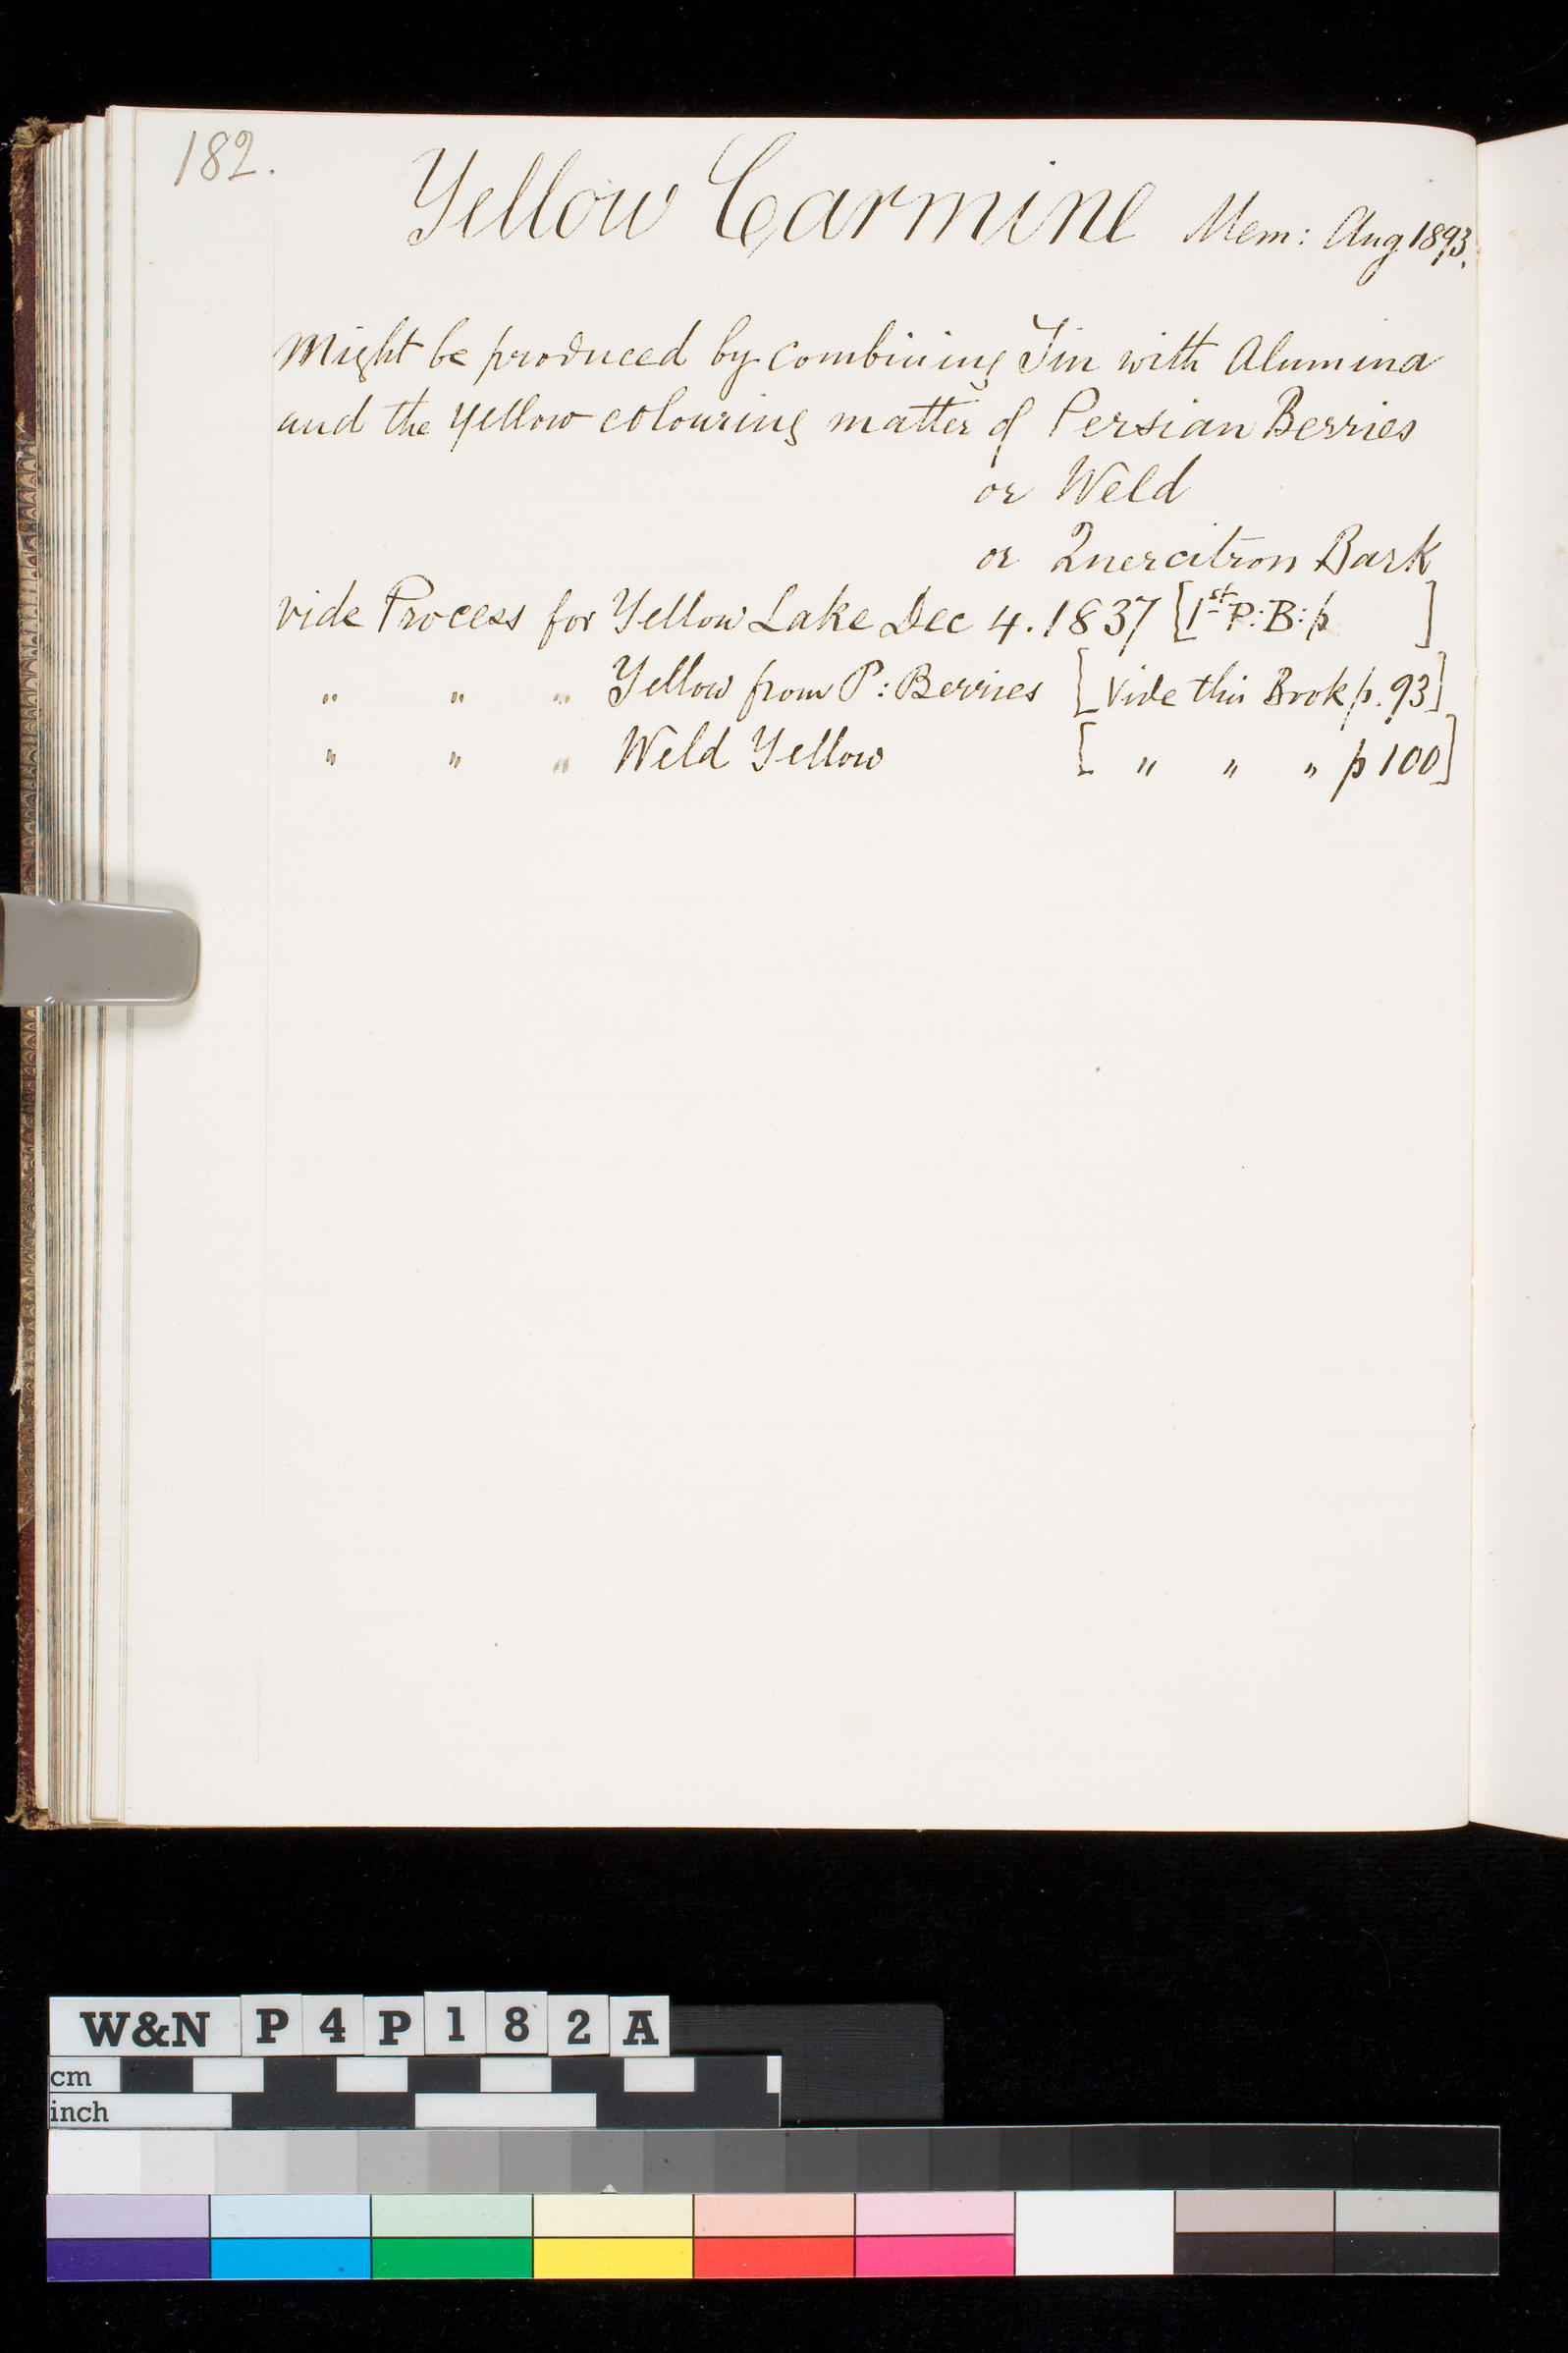 182.
Yellow Carmine Mem: Aug 1893.
Might be produced by combining Tin with Alumina
and the yellow colouring matter of Persian Berries
or Weld
or Quercitron Bark
vide Process for Yellow Lake Dec 4. 1837 [1st P: B: p ]
" " " Yellow from P: Berries [Vide this Book p. 93]
" " " Weld Yellow [ " " " p 100]
W&N P4P182A
cm
inch